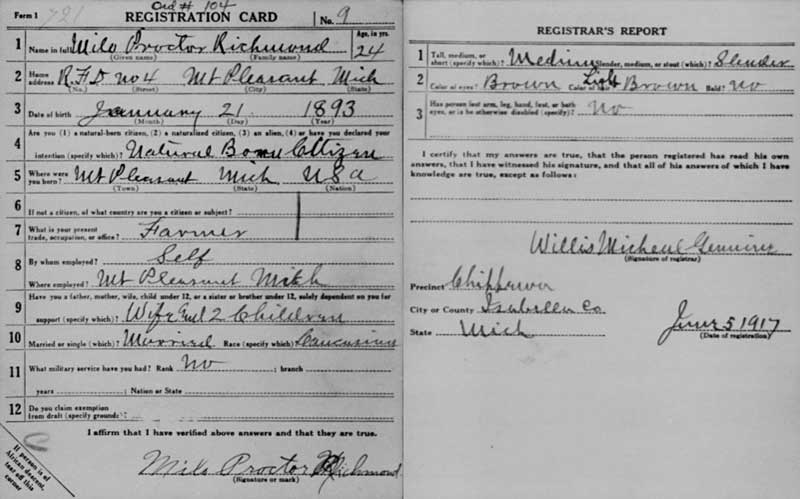 Form 1 721 Ord # 104
REGISTRATION CARD No. 9
1 Name in full Milo Proctor Richmond Age, in yrs. 24
(Given name) (Family name)
2 Home address R.F.D no 4 Mt Pleasant Mich
(No.) (Street) (City) (State)
3 Date of birth January 21 1893
(Month) (Day) (Year)
4 Are you (1) a natural-born citizen, (2) a naturalized citizen, (3) an alien, (4) or have you declared your
intention (specify which)? Natural Born Citizen
5 Where were you born? Mt Pleasant Mich USa
(Town) (State) (Nation)
6 If not a citizen, of what country are you a citizen or subject?
7 What is your present trade, occupation, or office? Farmer
8 By whom employed? Self
Where employed? Mt Pleasant Mich
9 Have you a father, mother, wife, child under 12, or a sister or brother under 12, solely dependent on you for
support (specify which)? Wife and 2 Children
10 Married or single (which)? Married Race (specify which)? Caucasian
11 What military service have you had? Rank no ; branch
years ; Nation or State
12 Do you claim exemption from draft (specify grounds)?
I affirm that I have verified above answers and that they are true.
If person is of
African descent,
tear off this
corner
Milo Proctor Richmond
(Signature or mark)
REGISTRAR'S REPORT
1 Tall, medium, or short (specify which)? Medium Slender, medium, or stout (which)? Slender
2 Color of eyes? Brown Color Light Brown Bald? no
3 Has person lost arm, leg, hand, foot, or both
eyes, or is he otherwise disabled (specify)? no
I certify that my answers are true, that the person registered has read his own
answers, that I have witnessed his signature, and that all of his answers of which I have
knowledge are true, except as follows:
Willis Micheal
(Signature of registrar)
Precinct Chippewa
City or County Isabella Co
State Mich June 5 1917
(Date of registration)